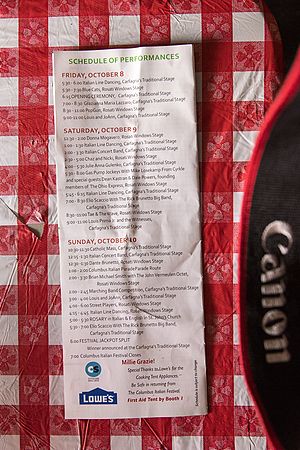 SCHEDULE OF PERFORMANCES
FRIDAY, OCTOBER 8
5:30 - 6:00 Italian Line Dancing, Carfagna's Traditional Stage
5:30 - 7:30 Blue Cats, Rosati Windows Stage
OPENING CEREMONY, Carfagna's Traditional Stage
7:00 - 8:30 Graziella Maria Lazzaro, Carfagna's Traditional Stage
8:30 - 11:00 PopGun, Rosati Windows Stage
9:00 - 11:00 Louis and JoAnn, Carfagna's Traditional Stage
SATURDAY, OCTOBER 9
12:30 - 2:00 Donna Mogavero, Rosati Windows Stage
1:00 - 1:30 Italian Line Dancing, Carfagna's Traditional Stage
2:00 - 3:00 Italian Concert Band, Carfagna's Traditional Stage
3:00 - 5:00 Chaz and Nicky, Rosati Windows Stage
4:00 - 5:30 Julie Anna Gulenko, Carfagna's Traditional Stage
5:30 - 8:00 Gas Pump Jockeys With Mike Lonekamp From Cyrkle
and special guests Dean Kastran & Dale Powers, founding
members of The Ohio Express, Rosati Windows Stage
6:00 - 6:30 Italian Line Dancing, Carfagna's Traditional Stage
7:00 - 8:30 Elio Scaccio With The Rick Brunetto Big Band,
Carfagna's Traditional Stage
8:30 - 11:00 Tae & The Wave, Rosati Windows Stage
9:00 - 11:00 Louis Prima Jr. and the Witnesses,
Carfagna's Traditional Stage
SUNDAY, OCTOBER 10
10:30 - 11:30 Catholic Mass, Carfagna's Traditional Stage
12:15 - 1:30 Italian Concert Band, Carfagna's Traditional Stage
12:30 - 2:30 Dante Brunetto, Rosati Windows Stage
1:00 - 2:00 Columbus Italian Parade Parade Route
2:00 - 3:30 Brian Michael Smith with the John Vermeulen Octet,
Rosati Windows Stage
2:00 - 2:45 Marching Band Competition, Carfagna's Traditional Stage
3:00 - 4:00 Louis and JoAnn, Carfagna's Traditional Stage
4:00 - 6:00 Street Players, Rosati Windows Stage
4:15 - 4:45 Italian Line Dancing, Rosati Windows Stage
5:00 - 5:30 ROSARY in Italian & English in St. John's Church
5:30 - 7:00 Elio Scaccio With The Rick Brunetto Big Band,
Carfagna's Traditional Stage
6:00 FESTIVAL JACKPOT SPLIT
Winner announced at the Carfagna's Traditional Stage
7:00 Columbus Italian Festival Closes
Millie Grazie!
Special Thanks to Lowe's for the
Cooking Tent Appliances.
Be Safe in returning from
The Columbus Italian Festival.
First Aid Tent by Booth 1
LOWE'S
Schedule is subject to change
Canon